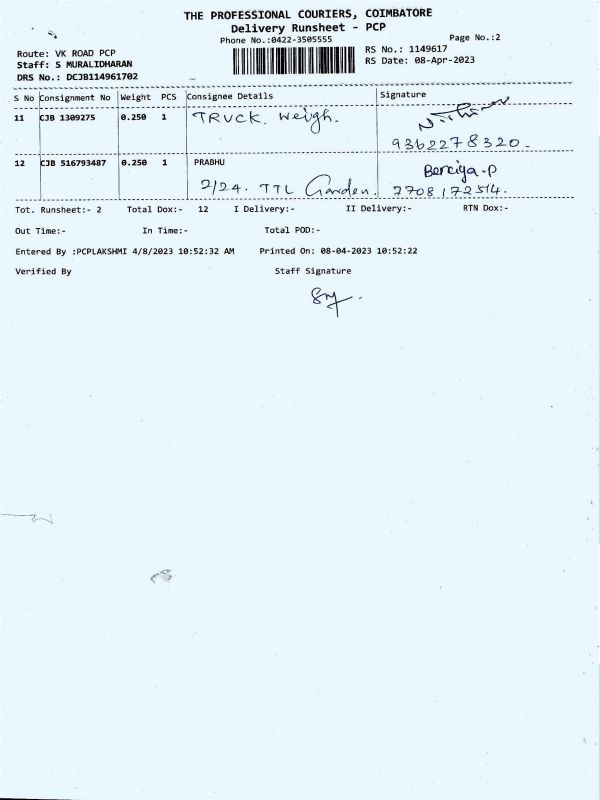 THE PROFESSIONAL COURIERS, COIMBATORE
Delivery Runsheet - PCP
Phone No.:0422-3505555
Page No.:2
Route: VK ROAD PCP
RS No.: 1149617
Staff: S MURALIDHARAN
RS Date: 08-Apr-2023
DRS No.: DCJB114961702
S No Consignment No Weight PCS Consignee Details Signature
11 CJB 1309275 0.250 1 TRUCK. Weigh.
9362278320.
12 CJB 516793487 0.250 1 PRABHU Benciya.P
2/24. TTL Garden. 7708172514.
Tot. Runsheet:- 2 Total Dox:- 12 I Delivery:- II Delivery:- RTN Dox:-
Out Time:- In Time:- Total POD:-
Entered By :PCPLAKSHMI 4/8/2023 10:52:32 AM Printed On: 08-04-2023 10:52:22
Verified By Staff Signature